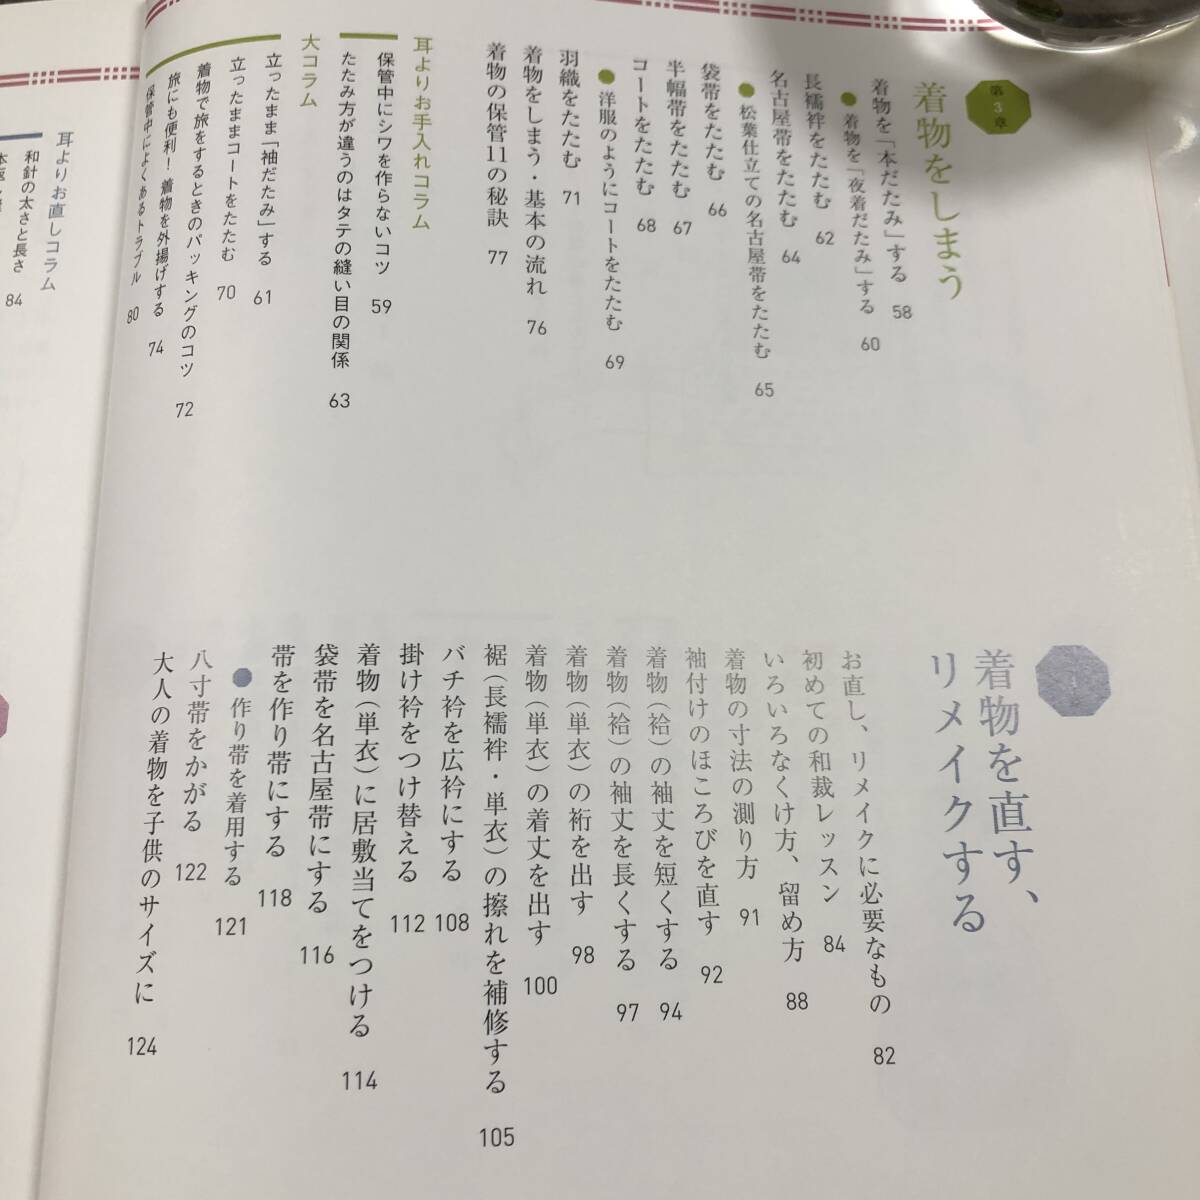 第3章
着物をしまう
着物を「本だたみ」する 58
●着物を「夜着だたみ」する 60
長襦袢をたたむ 62
名古屋帯をたたむ 64
●松葉仕立ての名古屋帯をたたむ 65
袋帯をたたむ 66
半幅帯をたたむ 67
コートをたたむ 68
●洋服のようにコートをたたむ 69
羽織をたたむ 71
着物をしまう・基本の流れ 76
着物の保管11の秘訣 77
耳よりお手入れコラム
保管中にシワを作らないコツ 59
たたみ方が違うのはタテの縫い目の関係 63
大コラム
立ったまま「袖だたみ」する 61
立ったままコートをたたむ 70
着物で旅をするときのパッキングのコツ 72
旅にも便利！着物を外揚げする 74
保管中によくあるトラブル 80
着物を直す、
リメイクする
お直し、リメイクに必要なもの 82
初めての和裁レッスン 84
いろいろなくけ方、留め方 88
着物の寸法の測り方 91
袖付けのほころびを直す 92
着物（袷）の袖丈を短くする 94
着物（袷）の袖丈を長くする 97
着物（単衣）の裄を出す 98
着物（単衣）の着丈を出す 100
裾（長襦袢・単衣）の擦れを補修する 105
バチ衿を広衿にする 108
掛け衿をつけ替える 112
着物（単衣）に居敷当てをつける 114
袋帯を名古屋帯にする 116
帯を作り帯にする 118
●作り帯を着用する 121
八寸帯をかがる 122
大人の着物を子供のサイズに 124
耳よりお直しコラム
和針の太さと長さ 84